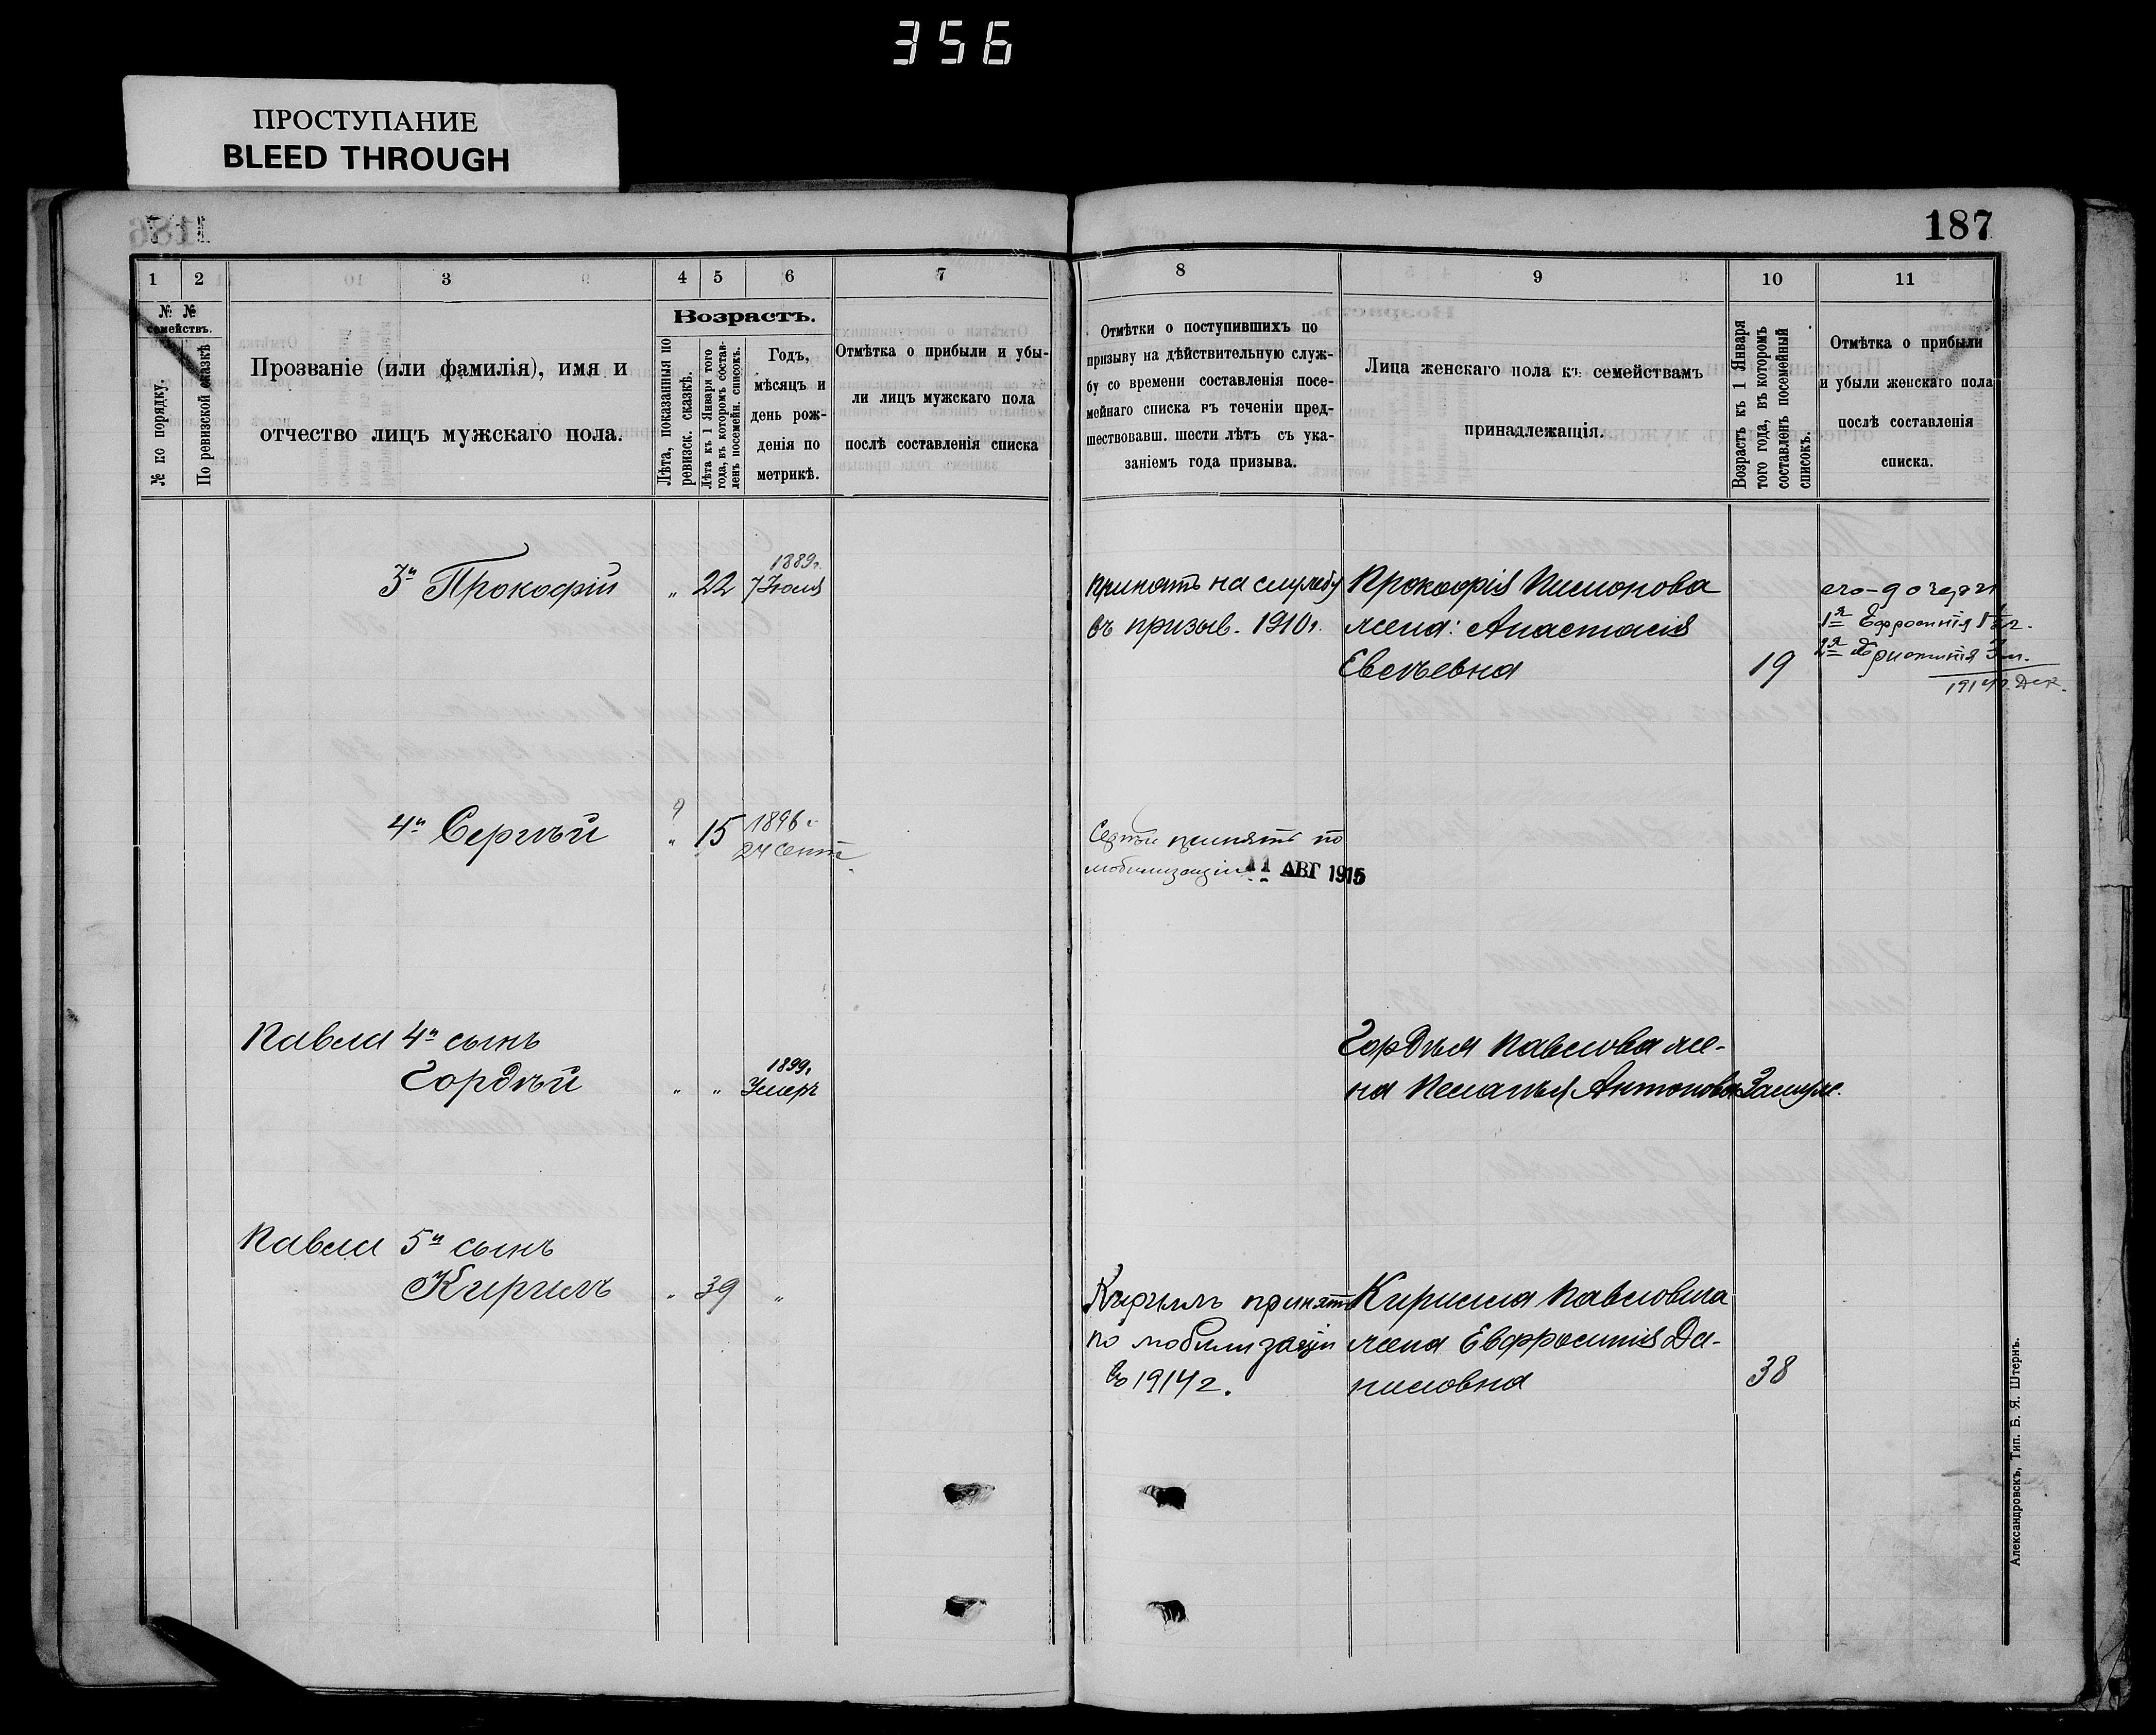 356
ПРОСТУПАНИЕ
BLEED THROUGH
187
1 2 3 4 5 6 7 8 9 10 11
№ № семействъ.
№ по порядку.
По ревизской сказкѣ
Прозваніе (или фамилія), имя и
отчество лицъ мужскаго пола.
Возрастъ.
Лѣта, показанныя по
ревизск. сказкѣ.
Лѣта къ 1 Января того
года, въ которомъ состав-
ленъ посемейн. списокъ.
Годъ,
мѣсяцъ и
день рож-
денія по
метрикѣ.
Отмѣтка о прибыли и убы-
ли лицъ мужскаго пола
послѣ составленія списка
Отмѣтки о поступившихъ по
призыву на дѣйствительную служ-
бу со времени составленія посе-
мейнаго списка въ теченіи пред-
шествовавш. шести лѣтъ съ ука-
заніемъ года призыва.
Лица женскаго пола къ семействамъ
принадлежащія.
Возрастъ къ 1 Января
того года, въ которомъ
составленъ посемейный
списокъ.
Отмѣтка о прибыли
и убыли женскаго пола
послѣ составленія
списка.
3й Прокофій " 22 1889г.
7 Іюля
принятъ на службу
въ призыв. 1910г.
Прокофія Пимонова
жена: Анастасія
Евсѣевна 19
его-дочери
1я Ефросинія
2я
1914г. Дек.
4й Сергѣй " 15 1896г.
24 Сент
принятъ по
мобилизаціи 11 АВГ 1915
Павла 4й сынъ
Гордѣй " " 1899г.
Умеръ
Гордѣя Павлова же-
на Пелагѣя Антонова Замуж.
Павла 5й сынъ
Кирилъ " 39 "
Кирилъ принятъ
по мобилизаціи
въ 1914г.
Кирилла Павловича
жена Евфросинія Да-
ниловна 38
Александровскъ, Тип. Б. Я. Штернъ.